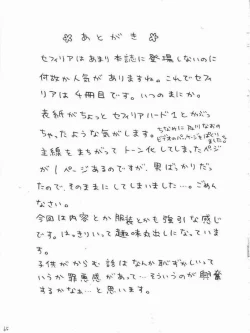 ☆ あとがき ☆
セフィリアはあまり本誌に登場しないのに
何故か人気がありますね。これでセフィ
リアは4冊目です。いつのまにか。
表紙がちょっとセフィリアハード1とかぶっ
ちゃったような気がします。
主線をまちがってトーン化してしまったページ
が1ページあるのですが、黒ばっかりだっ
たので、そのままにしてしまいました…。ごめん
なさい。
今回は内容とか服装とかも強引な感じ
です。はっきりいって趣味丸出しになっていま
す。
子供がからむ話はなんか恥ずかしいって
いうか罪悪感があって…そういうのが興奮
するかなぁ…と思います。